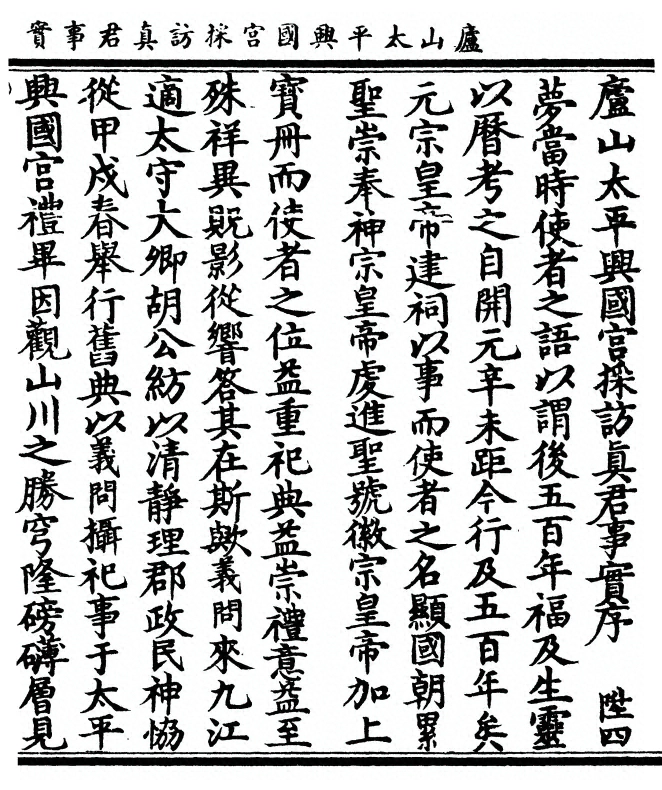 廬山太平興國宮採訪真君事實
廬山太平興國宮採訪眞君事實序　陞四
夢當時使者之語以謂後五百年福及生靈
以曆考之自開元辛未距今行及五百年矣
元宗皇帝建祠以事而使者之名顯國朝累
聖崇奉神宗皇帝虔進聖號徽宗皇帝加上
寶冊而使者之位益重祀典益崇禮意益至
殊祥異貺影從響答其在斯歟義問來九江
適太守大卿胡公紡以清靜理郡政民神恊
從甲戌春舉行舊典以義問攝祀事于太平
興國宮禮畢因觀山川之勝穹隆磅礴層見